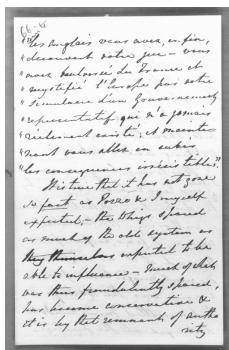 66-
"Les anglais vous avez, enfin,
"découvert votre jeu – vous
"avez bouleversé la France et
"mystifié l'Europe par votre
"Simulacre d'un Gouvernement
"représentatif qui n'a jamais
"réellement existé, et mainte-
"nant vous allez en subir
"les conséquences irrésistibles."
It is true that it has not gone
so fast as Pozzo & myself
expected, – the Whigs spared
as much of the old system as
they themselves expected to be
able to influence – much of what
was thus fraudulently spared,
has become conservative &
it is by that remnant of autho
rity